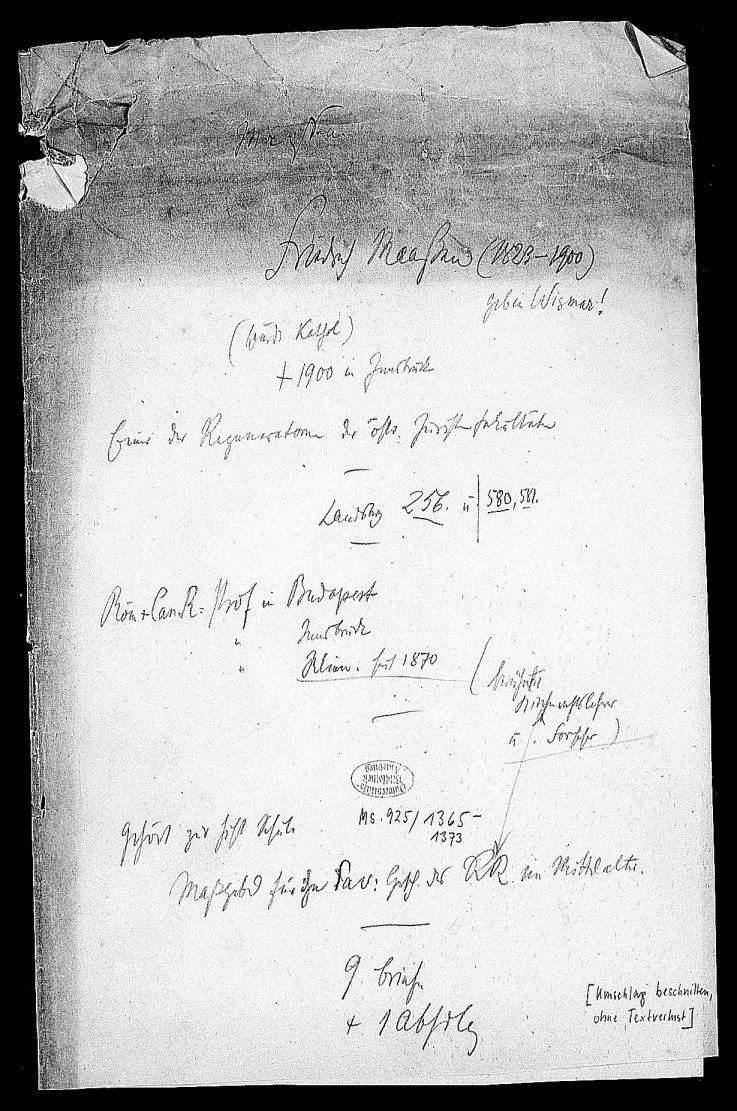 Friedrich Maaßen (1823–1900)
geb in Wismar!
(wurde Kathol)
+ 1900 in Innsbruck
Einer der Regeneratoren der östr. Juristenfakultäten
Landsbg 256. u 580, 581.
Röm + Can. R = Prof in Budapest
" Innsbruck
" Wien. seit 1870
(berühmter
Kirchenrechtslehrer
u. Forscher)
Universitäts
Bibliothek
Marburg
Ms. 925/1365–
1373
gehört zur hist Schule
Maßgebd für ihn Sav: Gesch. des RR im Mittelalter.
9 Briefe
+ 1
[Umschlag beschnitten,
ohne Textverlust]